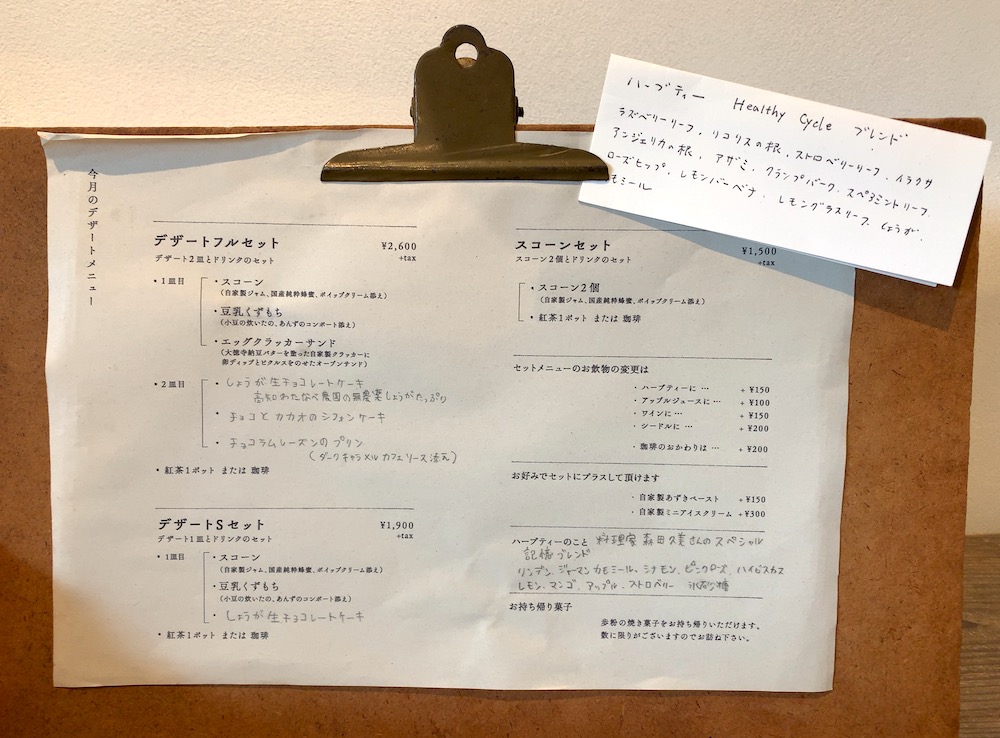 今月のデザートメニュー
デザートフルセット ¥2,600
デザート2皿とドリンクのセット +tax
・1皿目
・スコーン
(自家製ジャム、国産純粋蜂蜜、ホイップクリーム添え)
・豆乳くずもち
(小豆の炊いたの、あんずのコンポート添え)
・エッグクラッカーサンド
(大徳寺納豆バターを塗った自家製クラッカーに
卵ディップとピクルスをのせたオープンサンド)
・2皿目
・しょうが生チョコレートケーキ
高知わたなべ農園の無農薬しょうがたっぷり
・チョコとカカオのシフォンケーキ
・チョコラムレーズンのプリン
(ダークキャラメルカフェソース添え)
・紅茶1ポット または 珈琲
デザートSセット ¥1,900
デザート1皿とドリンクのセット +tax
・1皿目
・スコーン
(自家製ジャム、国産純粋蜂蜜、ホイップクリーム添え)
・豆乳くずもち
(小豆の炊いたの、あんずのコンポート添え)
・しょうが生チョコレートケーキ
・紅茶1ポット または 珈琲
スコーンセット ¥1,500
スコーン2個とドリンクのセット +tax
・スコーン2個
(自家製ジャム、国産純粋蜂蜜、ホイップクリーム添え)
・紅茶1ポット または 珈琲
セットメニューのお飲物の変更は
・ハーブティーに … +¥150
・アップルジュースに … +¥100
・ワインに … +¥150
・シードルに … +¥200
・珈琲のおかわりは … +¥200
お好みでセットにプラスして頂けます
・自家製あずきペースト +¥150
・自家製ミニアイスクリーム +¥300
ハーブティーのこと 料理家 森田久美さんのスペシャル
記憶ブレンド
リンデン、ジャーマンカモミール、シナモン、ピンクローズ、ハイビスカス
レモン、マンゴ、アップル、ストロベリー 氷砂糖
お持ち帰り菓子
歩粉の焼き菓子をお持ち帰りいただけます。
数に限りがございますのでお訪ね下さい。
ハーブティー Healthy Cycle ブレンド
ラズベリーリーフ、リコリスの根、ストロベリーリーフ、イラクサ
アンジェリカの根、アザミ、クランプバーク、スペアミントリーフ、
ローズヒップ、レモンバーベナ、レモングラスリーフ、しょうが、
モミール